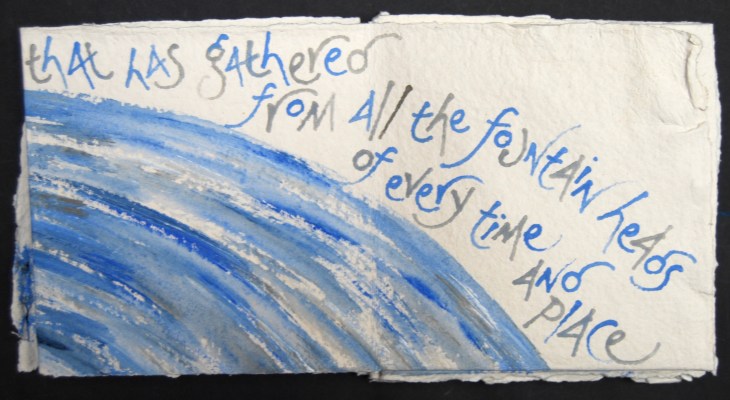 that has gathered
from all the fountain heads
of every time
and
place